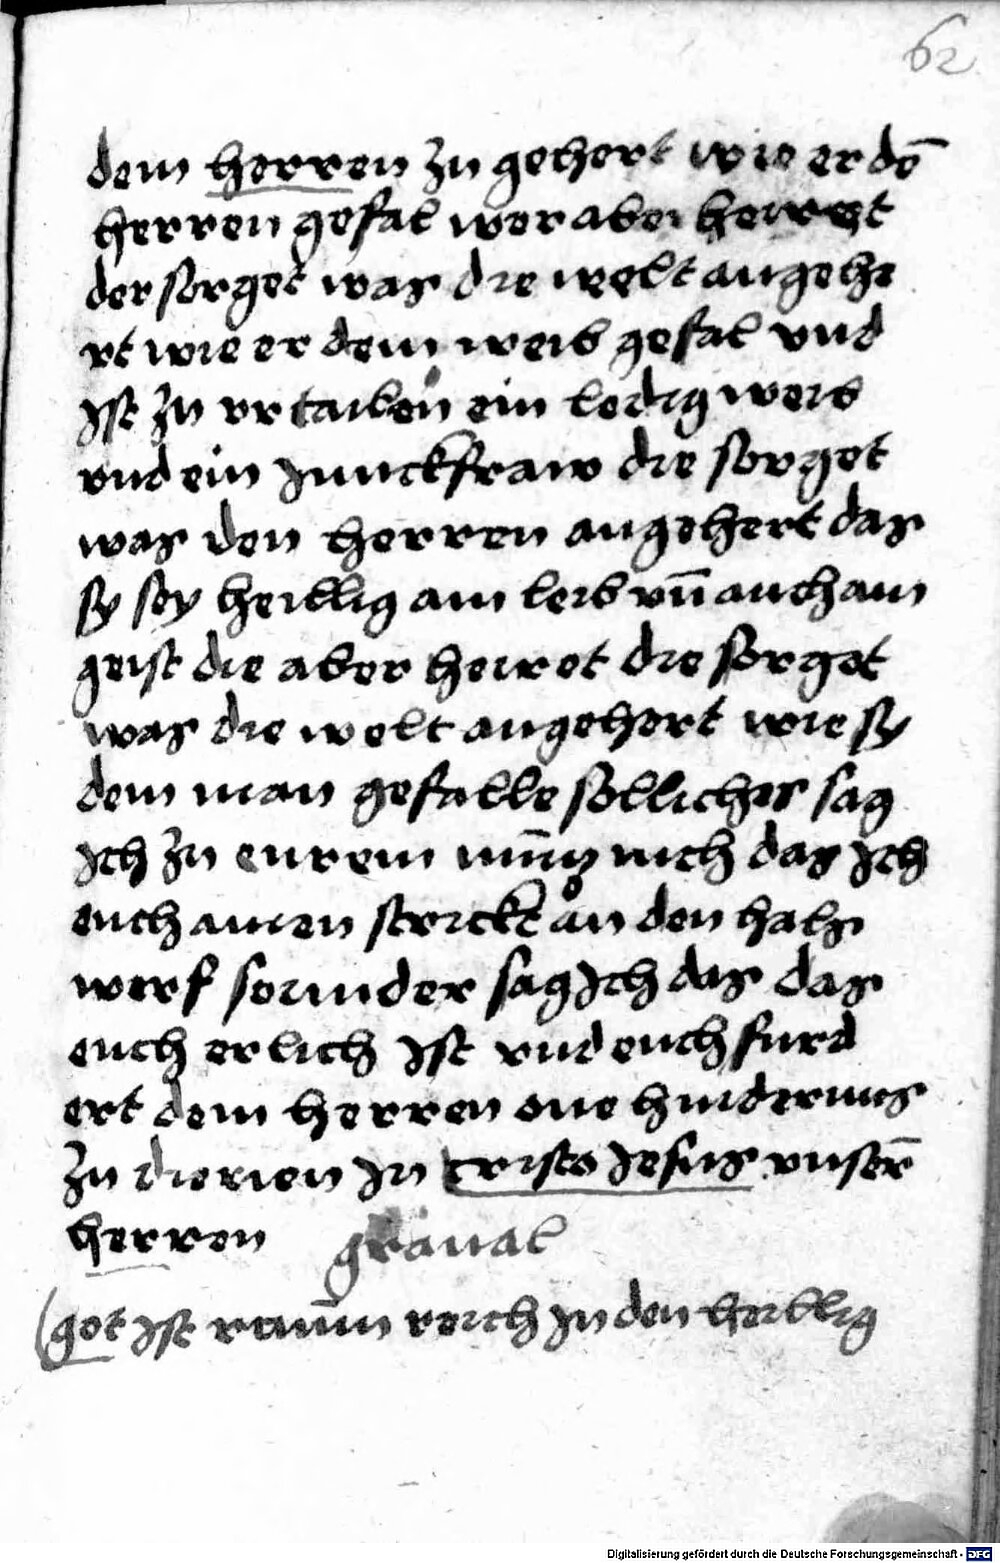 62
dem herren zu gehert wie er dē
herren gefal wer aber heiret
der sorget was die welt angehe
rt wie er dem weib gefal vnd
Ist zu vrtailen ein ledig weib
vnd ein Junckfraw die sorget
was den herren angehert das
sy sey heillig am leib vn̄ auch am
geist die aber heiret die sorget
was die welt angehert wie sy
dem man gefalle sollichs sag
Ich zu eurem nich das Ich
euch ainen strickt an den hals
werf sounder sag Ich das das
euch erlich Ist vnd euch furd
ert dem herren one hindernus
zu dienen In cristo Jesus vnserē
herren gradual
got Ist reich In den heillig
Digitalisierung gefördert durch die Deutsche Forschungsgemeinschaft - DFG